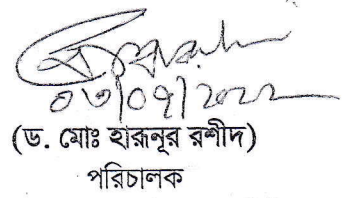 ০৬/০৭/২০২২
(ড. মোঃ হারূনূর রশীদ)
পরিচালক